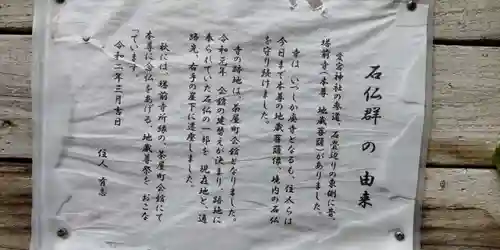 石仏群の由来
愛宕神社の参道、石畳辺りの東側に昔、
塔前寺(本尊 地蔵菩薩)がありました。
寺は、いつしか廃寺となるも、住人らは
今日まで本尊の地蔵菩薩像、境内の石仏
を守り続けました。
寺の跡地は、茶屋町会館となりました。
令和元年 会館の建替えが決まり、跡地に
奉られていた石仏の一部を 現在地と、道
路克、右手の崖下に遷座しました。
秋には、塔前寺所縁の、茶屋町会館にて
本尊に念仏をあげる、地蔵尊祭を おこな
っています。
令和二年三月吉日
住人 有志